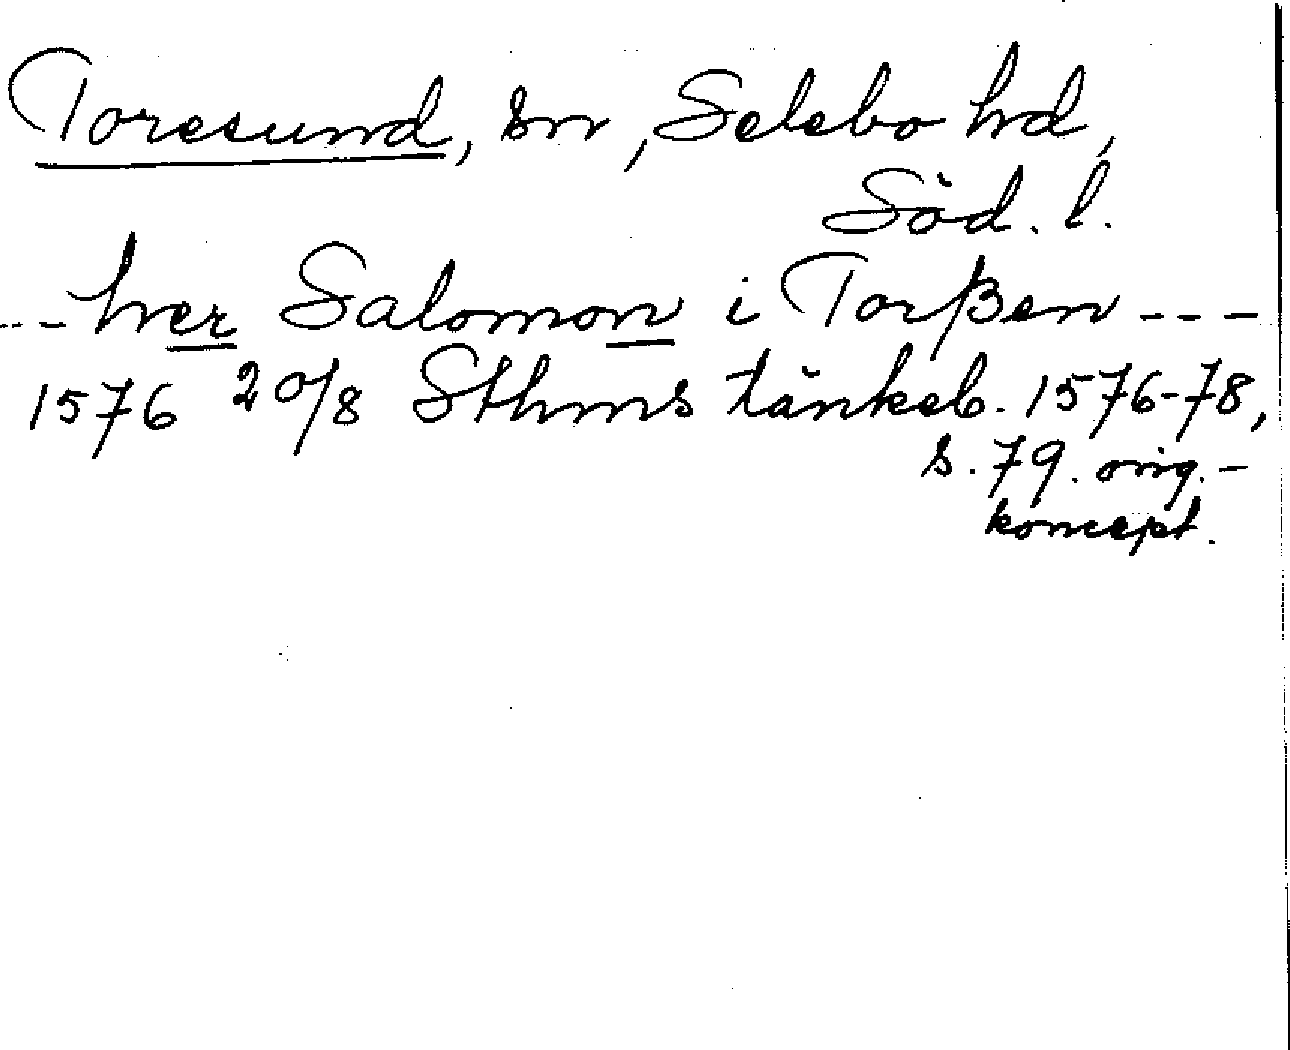 Toresund, sn, Selebo hd,
Söd. l.
--- her Salomon i Torßen ---
1576 20/8 Sthms tänkeb. 1576-78,
s. 79. orig.-
koncept.